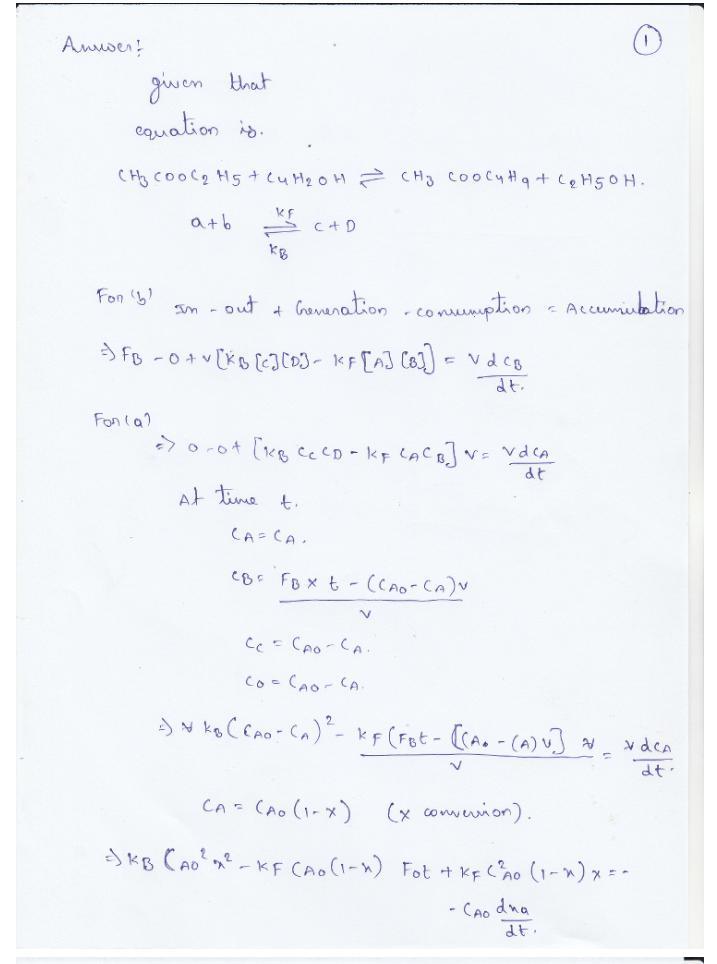 Answer:
1
given that
equation is.
CH3 COOC2 H5 + C4H2OH ⇌ CH3 COOC4H9 + C2H5OH.
a+b ⇌ C + D
KF
KB
For (b) In - out + Generation - consumption = Accumulation
⇒ FB - 0 + v[KB [C][D] - KF [A] [B]] = V dCB/dt.
For (a)
⇒ 0 - 0 + [KB CC CD - KF CA CB] V = V dCA/dt
At time t.
CA = CA.
CB = FB x t - (CA0 - CA)V / V
CC = CA0 - CA.
CD = CA0 - CA.
⇒ V KB (CA0 - CA)² - KF (FBt - [(CA0 - CA)V] V / V = V dCA/dt.
CA = CA0 (1-x) (x conversion).
⇒ KB CA0² x² - KF CA0 (1-x) F0t + KF C²A0 (1-x) x = -
- CA0 dxa/dt.